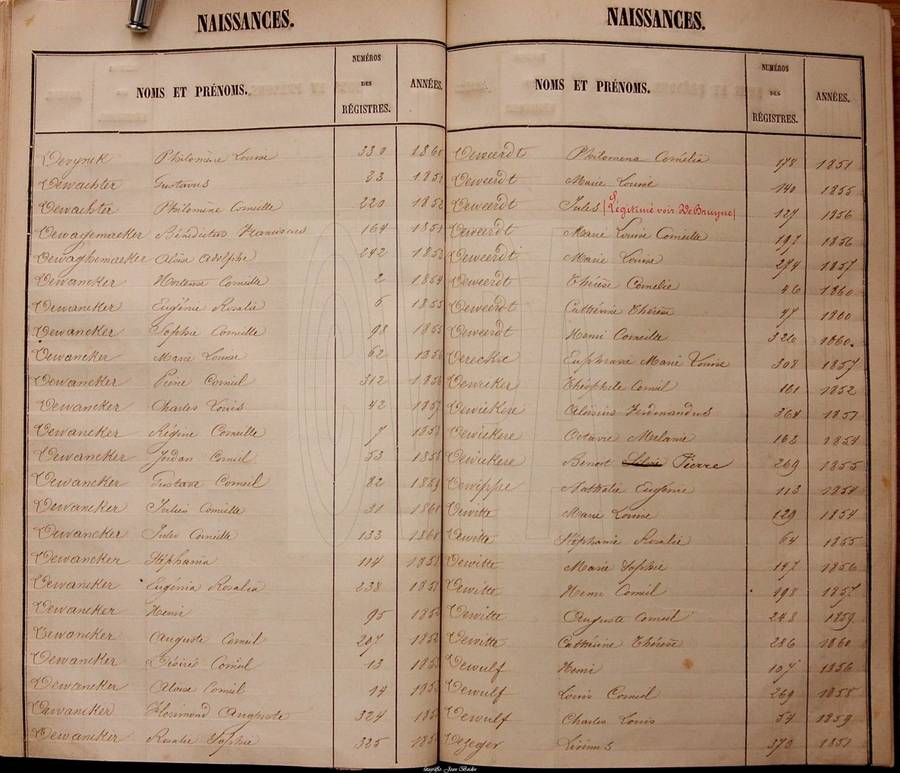 NAISSANCES.
NOMS ET PRÉNOMS. NUMÉROS DES RÉGISTRES. ANNÉES.
Devynck Philomène Louise 330 1860
Dewachter Gustavus 23 185
Dewachter Philomène Camille 220 1852
Dewagemaeker Bénédictus Franciscus 164 185
Dewaghemaeker Aloïse Adolphe 242 185
Dewancker Hortense Camille 2 1854
Dewancker Eugénie Rosalie 6 1855
Dewancker Sophie Camille 98 1855
Dewancker Marie Louise 62 185
Dewancker Pierre Corneil 312 185
Dewancker Charles Louis 42 1857
Dewancker Régine Camille 7 185
Dewancker Jordan Corneil 53 185
Dewancker Gustave Corneil 82 1859
Dewancker Julien Camille 31 186
Dewancker Jules Camille 133 1860
Dewancker Stéphania 114 185
Dewancker Eugénia Rosalia 238 185
Dewancker Henri 95 185
Dewancker Auguste Corneil 207 185
Dewancker Désiré Corneil 13 185
Dewancker Aloise Corneil 14 185
Dewancker Florimond Auguste 324 185
Dewancker Rosalie Sophie 325 185
NAISSANCES.
NOMS ET PRÉNOMS. NUMÉROS DES RÉGISTRES. ANNÉES.
Deweerdt Philomena Cornélia 178 1851
Deweerdt Marie Louise 140 1855
Deweerdt Jules (Légitimé voir DeBruyne) 127 1856
Deweerdt Marie Louise Camille 192 1856
Deweerdt Marie Louise 274 1857
Deweerdt Thérèse Camélie 46 1860
Deweerdt Cathérine Thérèse 97 1860
Deweerdt Henri Camille 320 1860.
Euphrasie Marie Louise 308 1857
Théophile Corneil 161 1852
Dewickere Aloïsius Ferdinandus 364 1851
Dewickere Octavie Mélanie 162 1854
Dewickere Benoit Pierre 269 1855
Dewippe Nathalie Eugénie 113 1854
Dewitte Marie Louise 129 1854
Dewitte Stéphanie Rosalie 64 1855
Dewitte Marie Sophie 192 1856
Dewitte Henri Corneil 198 1857
Dewitte Auguste Corneil 248 1859
Dewitte Cathérine Thérèse 286 1860
Dewulf Henri 107 1856
Dewulf Louis Corneil 269 1858
Dewulf Charles Louis 54 1859
Dezeger Livinus 370 1851